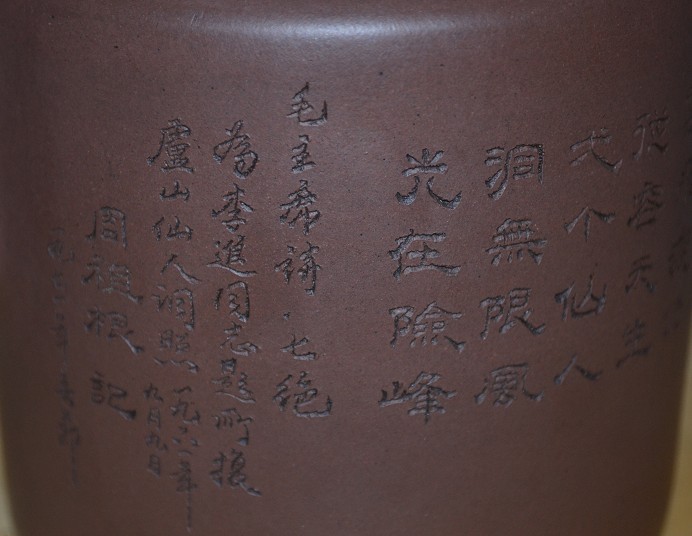 從容天生
弌个仙人
洞無限風
光在險峰
毛主席詩·七绝
為李進同志題所攝
廬山仙人洞照
一九六一年
九月九日
周祖根 記